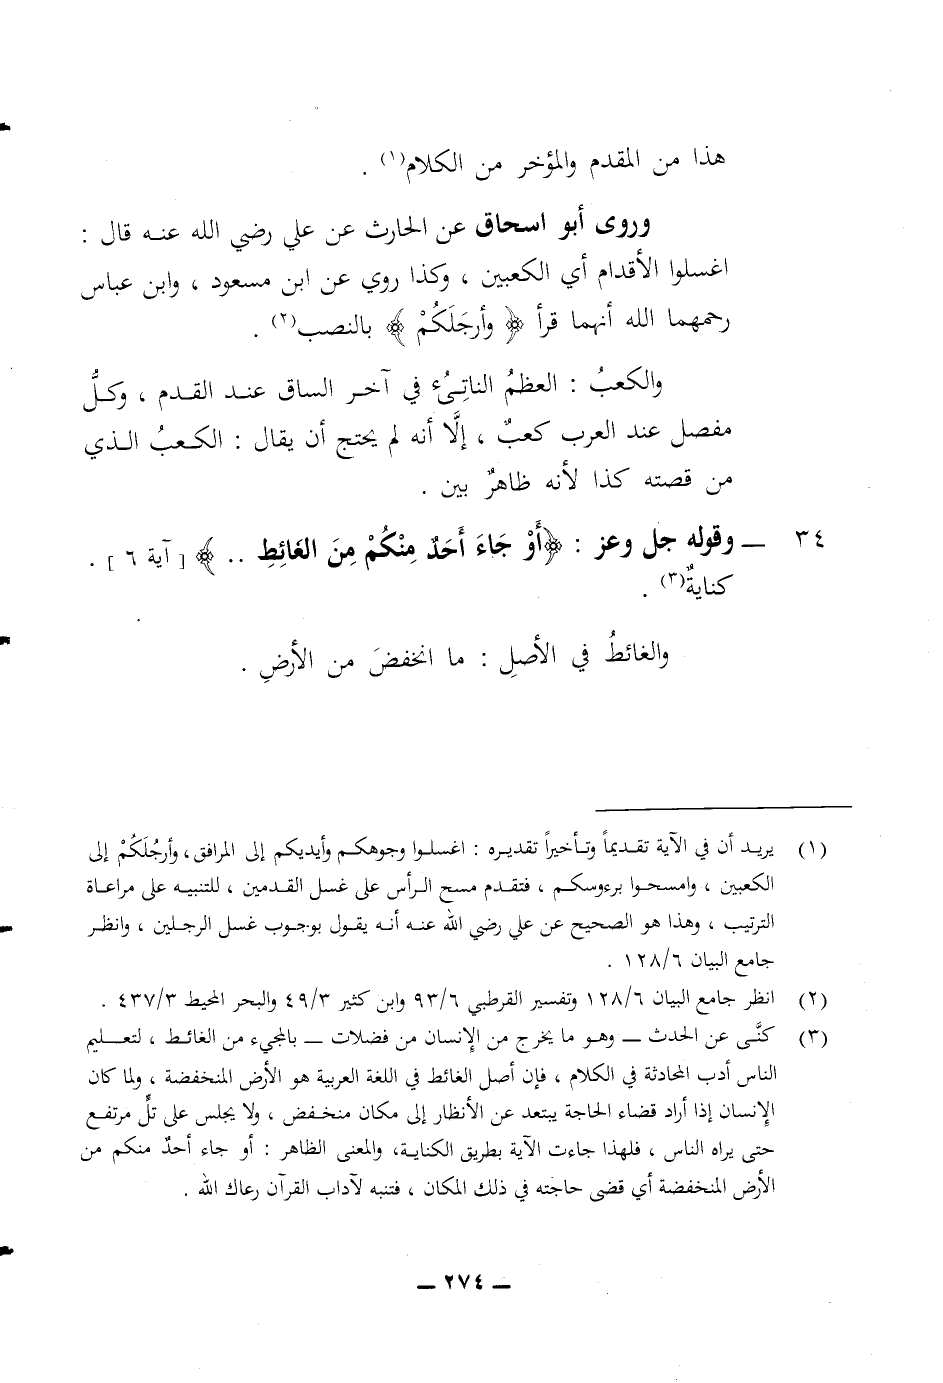 هذا من المقدم والمؤخر من الكلام(١) .
وروى أبو اسحاق عن الحارث عن علي رضي الله عنه قال :
اغسلوا الأقدام أي الكعبين ، وكذا روي عن ابن مسعود ، وابن عباس
رحمهما الله أنهما قرأ ﴿ وأرجَلَكُمْ ﴾ بالنصب(٢) .
والكعبُ : العظمُ الناتِیُٔ في آخر الساق عند القدم ، وكلُّ
مفصل عند العرب كعبٌ ، إلَّا أنه لم يحتج أن يقال : الكعبُ الذي
من قصته كذا لأنه ظاهرٌ بين .
٣٤ ــ وقوله جل وعز : ﴿أَوْ جَاءَ أَحَدٌ مِنْكُمْ مِنَ الغَائِطِ .. ﴾ [ آية ٦ ] .
كنايةٌ(٣) .
والغائطُ في الأصلِ : ما انخفضَ من الأرضِ .
(١) يريد أن في الآية تقديماً وتأخيراً تقديره : اغسلوا وجوهكم وأيديكم إلى المرافق، وأرجُلَكُمْ إلى
الكعبين ، وامسحوا برءوسكم ، فتقدم مسح الرأس على غسل القدمين ، للتنبيه على مراعاة
الترتيب ، وهذا هو الصحيح عن علي رضي الله عنه أنه يقول بوجوب غسل الرجلين ، وانظر
جامع البيان ١٢٨/٦ .
(٢) انظر جامع البيان ١٢٨/٦ وتفسير القرطبي ٩٣/٦ وابن كثير ٤٩/٣ والبحر المحيط ٤٣٧/٣ .
(٣) كنَّى عن الحدث ــ وهو ما يخرج من الإنسان من فضلات ــ بالمجيء من الغائط ، لتعليم
الناس أدب المحادثة في الكلام ، فإن أصل الغائط في اللغة العربية هو الأرض المنخفضة ، ولما كان
الإنسان إذا أراد قضاء الحاجة يبتعد عن الأنظار إلى مكان منخفض ، ولا يجلس على تلٍّ مرتفع
حتى يراه الناس ، فلهذا جاءت الآية بطريق الكناية، والمعنى الظاهر : أو جاء أحدٌ منكم من
الأرض المنخفضة أي قضى حاجته في ذلك المكان ، فتنبه لآداب القرآن رعاك الله .
ــ ٢٧٤ ــ